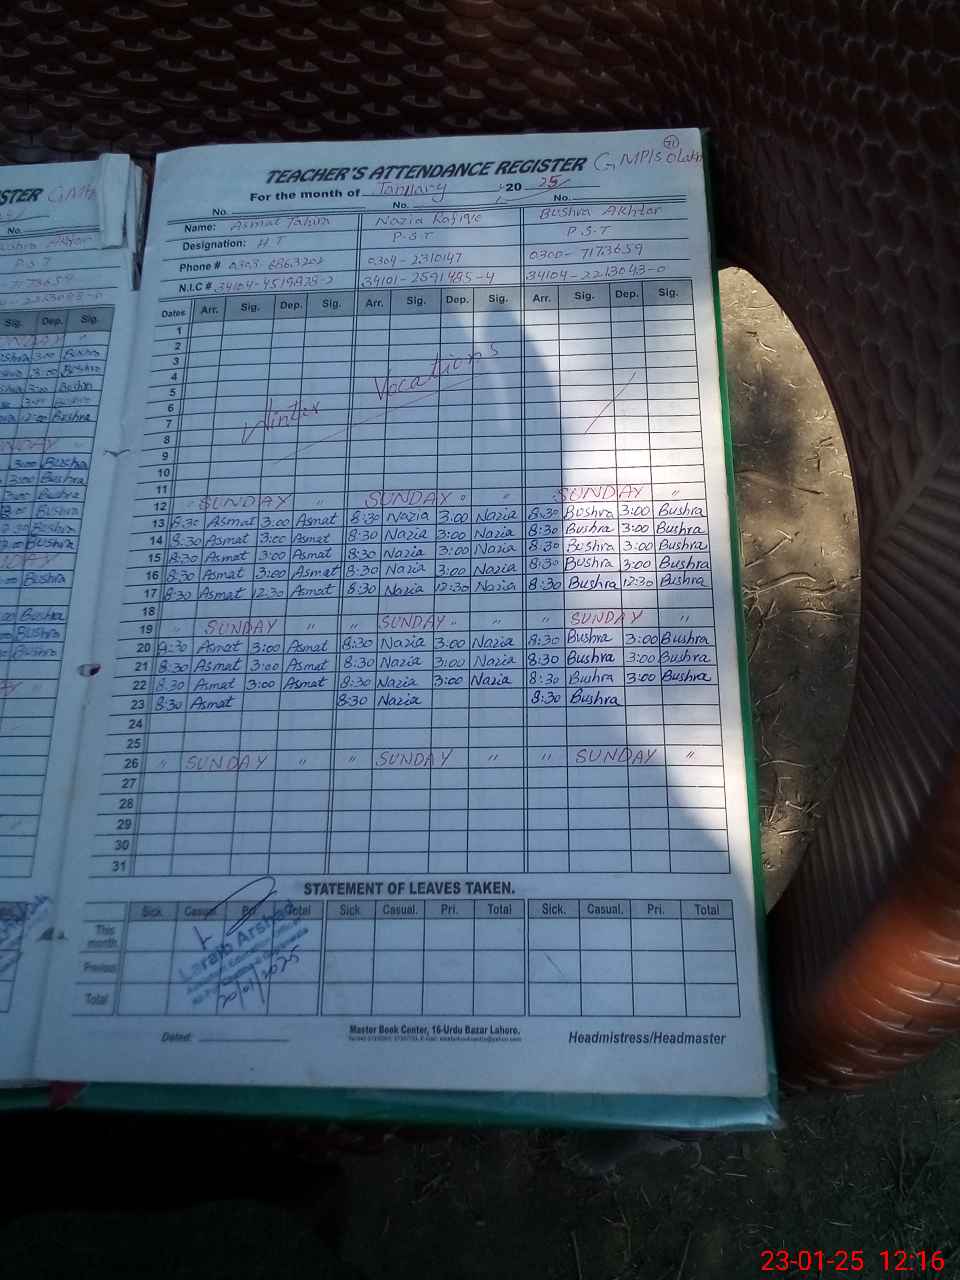 TEACHER'S ATTENDANCE REGISTER G.MP/S Olakh
For the month of January 2025/
No. No. No.
Name: Asmat Tahra Nazia Rafique Bushra Akhtar
Designation: H T P.S.T P.S.T
Phone # 0304-2310147 0300-7173659
N.I.C # 34104-4519828-2 34101-2591485-4 34104-2213043-0
Dates Arr. Sig. Dep. Sig. Arr. Sig. Dep. Sig. Arr. Sig. Dep. Sig.
1
2
3
4
5
6
7
8
9
10
11
Winter Vocations
12 " SUNDAY " SUNDAY " " SUNDAY "
13 8:30 Asmat 3:00 Asmat 8:30 Nazia 3:00 Nazia 8:30 Bushra 3:00 Bushra
14 8:30 Asmat 3:00 Asmat 8:30 Nazia 3:00 Nazia 8:30 Bushra 3:00 Bushra
15 8:30 Asmat 3:00 Asmat 8:30 Nazia 3:00 Nazia 8:30 Bushra 3:00 Bushra
16 8:30 Asmat 3:00 Asmat 8:30 Nazia 3:00 Nazia 8:30 Bushra 3:00 Bushra
17 8:30 Asmat 12:30 Asmat 8:30 Nazia 12:30 Nazia 8:30 Bushra 12:30 Bushra
18
19 " SUNDAY " " SUNDAY " " " SUNDAY "
20 8:30 Asmat 3:00 Asmat 8:30 Nazia 3:00 Nazia 8:30 Bushra 3:00 Bushra
21 8:30 Asmat 3:00 Asmat 8:30 Nazia 3:00 Nazia 8:30 Bushra 3:00 Bushra
22 8:30 Asmat 3:00 Asmat 8:30 Nazia 3:00 Nazia 8:30 Bushra 3:00 Bushra
23 8:30 Asmat 8:30 Nazia 8:30 Bushra
24
25
26 " SUNDAY " " SUNDAY " " SUNDAY "
27
28
29
30
31
STATEMENT OF LEAVES TAKEN.
Sick. Casual. Pri. Total Sick. Casual. Pri. Total Sick. Casual. Pri. Total
This month
Previous
Total
Laraib Arshad
20/01/2025
Dated:
Master Book Center, 16-Urdu Bazar Lahore.
Headmistress/Headmaster
23-01-25 12:16